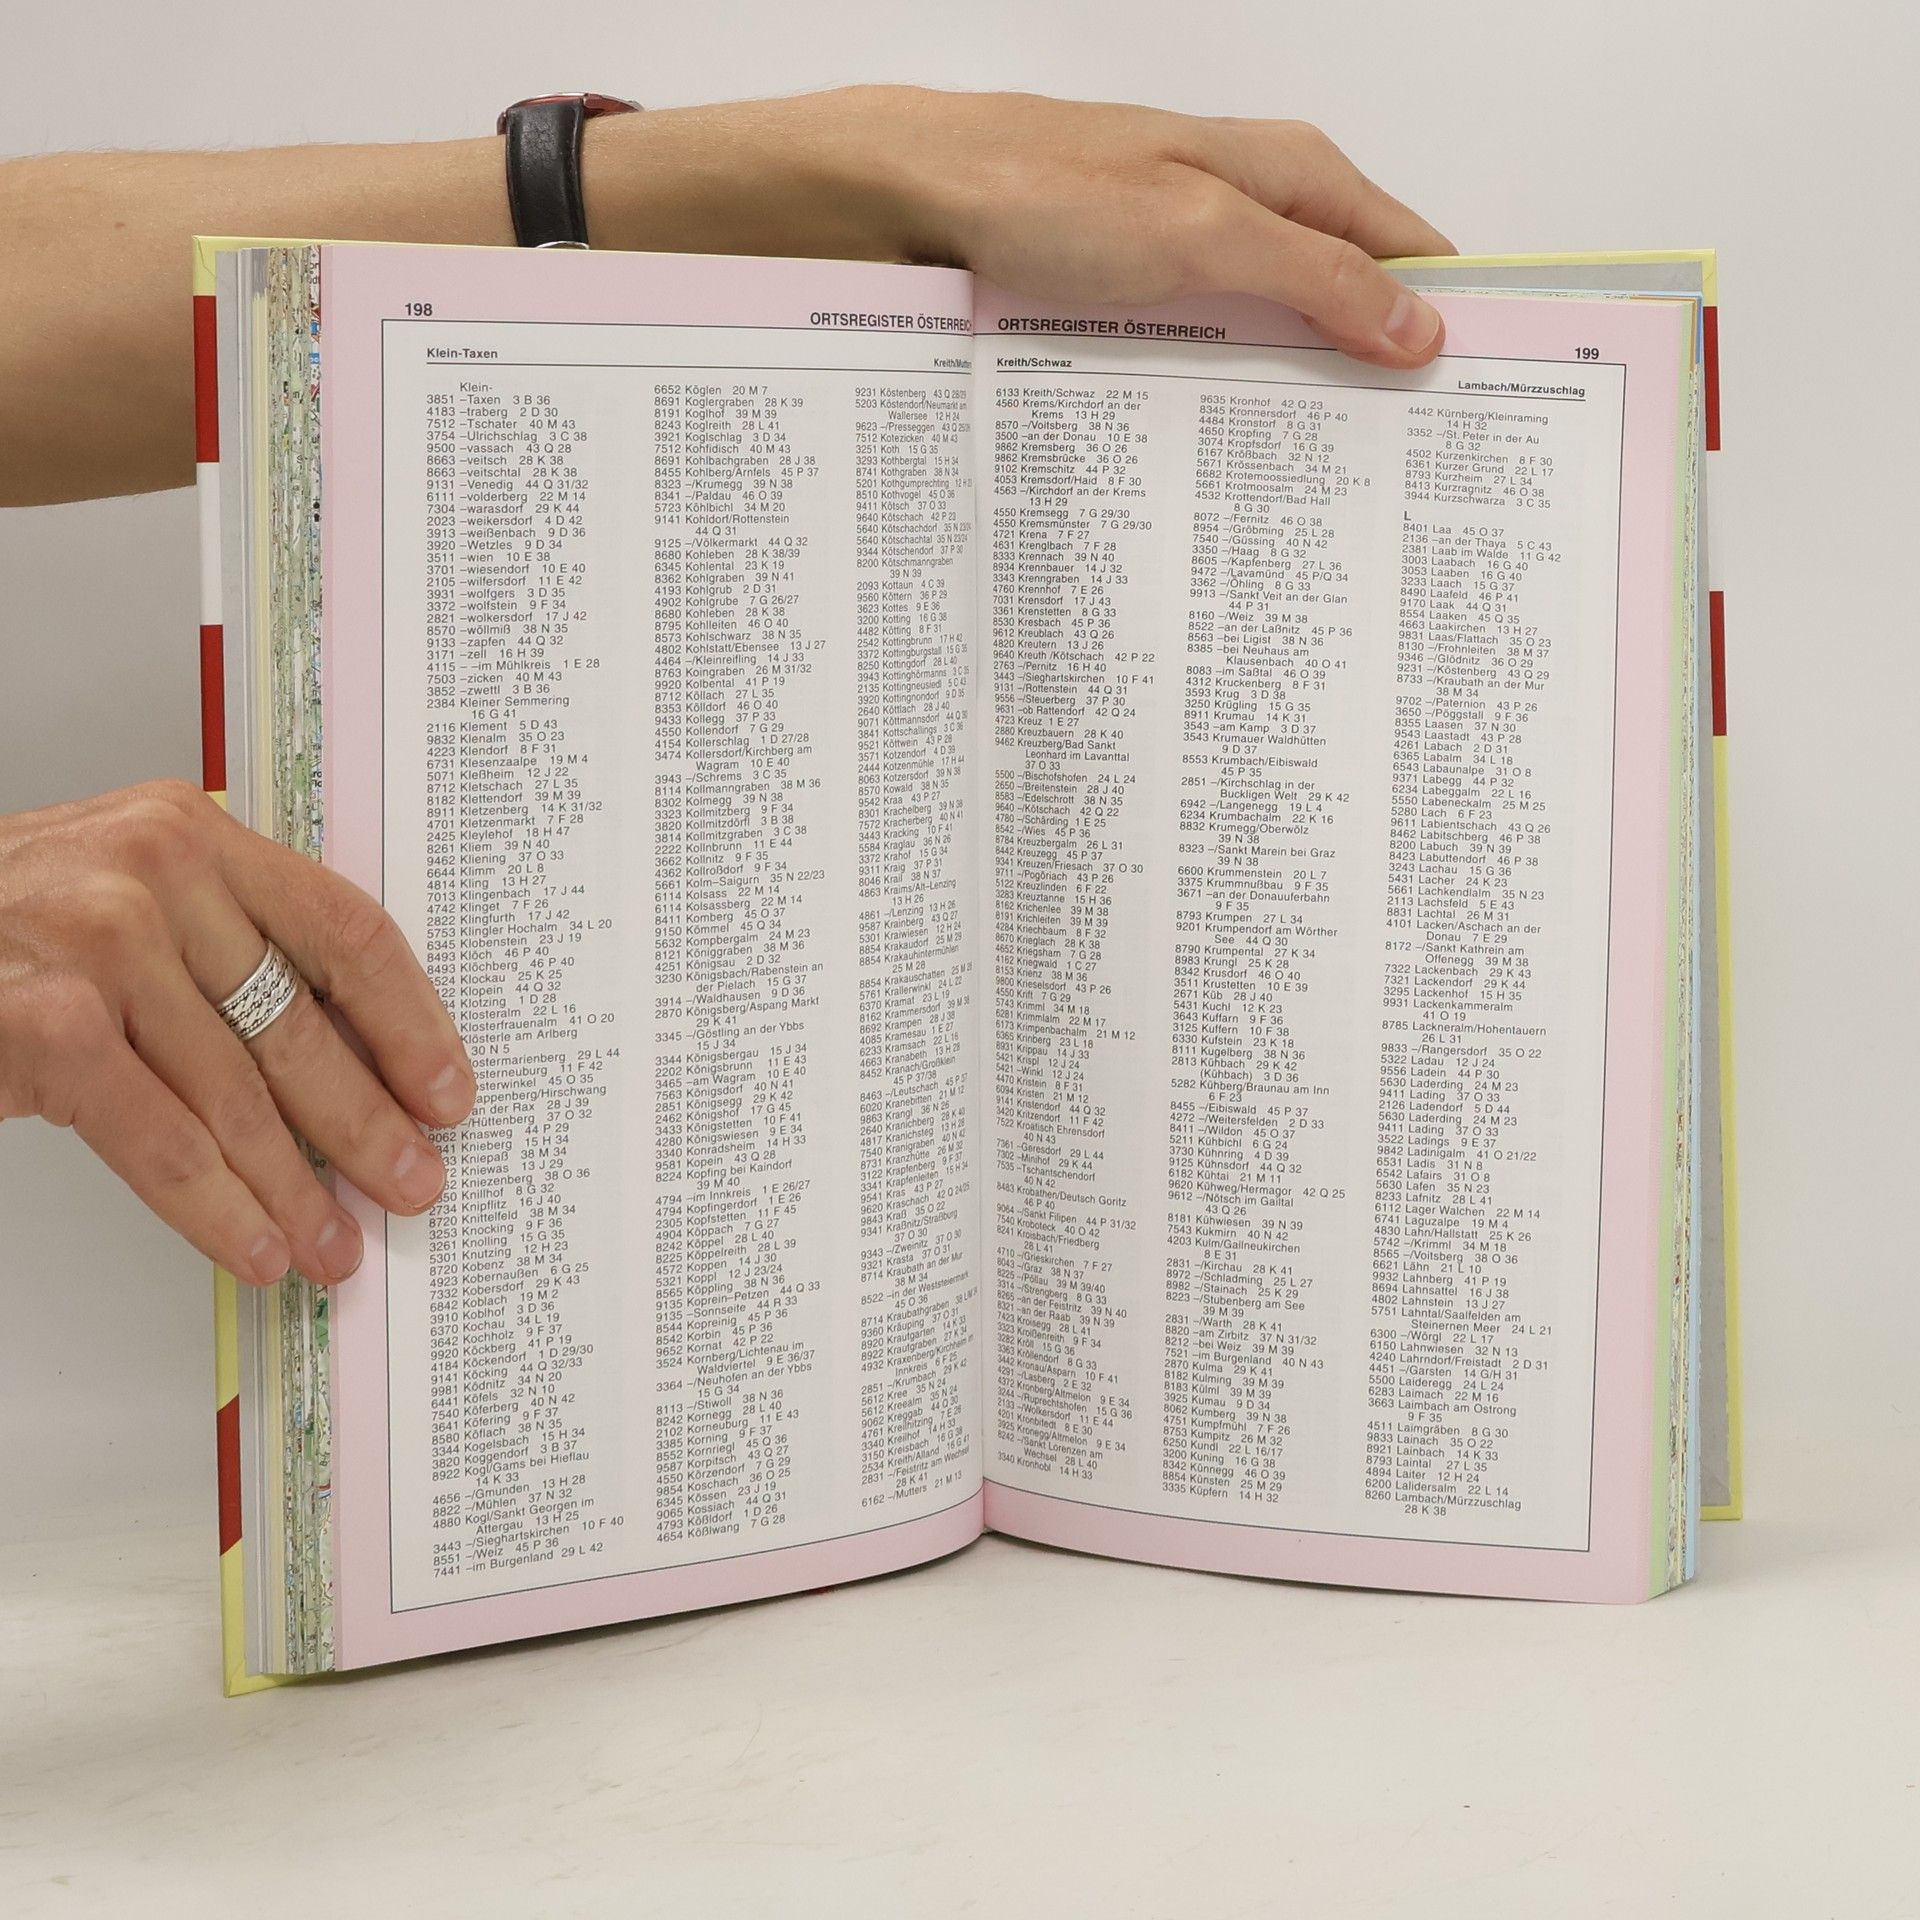 198
ORTSREGISTER ÖSTERREICH
Klein-Taxen
Kreith/Mutters
Klein-
3851 –Taxen 3 B 36
4183 –traberg 2 D 30
7512 –Tschater 40 M 43
3754 –Ulrichschlag 3 C 38
9500 –vassach 43 Q 28
8663 –veitsch 28 K 38
8663 –veitschtal 28 K 38
9131 –Venedig 44 Q 31/32
6111 –volderberg 22 M 14
7304 –warasdorf 29 K 44
2023 –weikersdorf 4 D 42
3913 –weißenbach 9 D 36
3920 –Wetzles 9 D 34
3511 –wien 10 E 38
3701 –wiesendorf 10 E 40
2105 –wilfersdorf 11 E 42
3931 –wolfgers 3 D 35
3372 –wolfstein 9 F 34
2821 –wolkersdorf 17 J 42
8570 –wöllmiß 38 N 35
9133 –zapfen 44 Q 32
3171 –zell 16 H 39
4115 – –im Mühlkreis 1 E 28
7503 –zicken 40 M 43
3852 –zwettl 3 B 36
2384 Kleiner Semmering
16 G 41
2116 Klement 5 D 43
9832 Klenalm 35 O 23
4223 Klendorf 8 F 31
6731 Klesenzaalpe 19 M 4
5071 Kleßheim 12 J 22
8712 Kletschach 27 L 35
8182 Klettendorf 39 M 39
8911 Kletzenberg 14 K 31/32
4701 Kletzenmarkt 7 F 28
2425 Kleylehof 18 H 47
8261 Kliem 39 N 40
9462 Kliening 37 O 33
6644 Klimm 20 L 8
4814 Kling 13 H 27
7013 Klingenbach 17 J 44
4742 Klinget 7 F 26
2822 Klingfurth 17 J 42
5753 Klingler Hochalm 34 L 20
6345 Klobenstein 23 J 19
8493 Klöch 46 P 40
8493 Klöchberg 46 P 40
Klockau 25 K 25
Klopein 44 Q 32
Klotzing 1 D 28
Klosteralm 22 L 16
Klosterfrauenalm 41 O 20
Klösterle am Arlberg
30 N 5
29 L 44
11 F 42
45 O 35
an der Rax 28 J 39
–/Hüttenberg 37 O 32
9062 Knasweg 44 P 29
Knieberg 15 H 34
Kniepaß 38 M 34
Kniewas 13 J 29
Kniezenberg 38 O 36
Knillhof 8 G 32
2734 Knipflitz 16 J 40
8720 Knittelfeld 38 M 34
3253 Knocking 9 F 36
3261 Knolling 15 G 35
5301 Knutzing 12 H 23
8720 Kobenz 38 M 34
4923 Kobernaußen 6 G 25
7332 Kobersdorf 29 K 43
6842 Koblach 19 M 2
3910 Koblhof 3 D 36
6370 Kochau 34 L 19
3642 Kochholz 9 F 37
9920 Köckberg 41 P 19
4184 Köckendorf 1 D 29/30
9141 Köcking 44 Q 32/33
9981 Ködnitz 34 N 20
6441 Köfels 32 N 10
7540 Köferberg 40 N 42
3641 Köfering 9 F 37
8580 Köflach 38 N 35
3344 Kogelsbach 15 H 34
3820 Koggendorf 3 B 37
8922 Kogl/Gams bei Hieflau
14 K 33
4656 –/Gmunden 13 H 28
8822 –/Mühlen 37 N 32
4880 Kogl/Sankt Georgen im
Attergau 13 H 25
3443 –/Sieghartskirchen 10 F 40
8551 –/Weiz 45 P 36
7441 –im Burgenland 29 L 42
6652 Köglen 20 M 7
8691 Koglergraben 28 K 39
8191 Koglhof 39 M 39
8243 Koglreith 28 L 41
3921 Koglschlag 3 D 34
7512 Kohfidisch 40 M 43
8691 Kohlbachgraben 28 J 38
8455 Kohlberg/Arnfels 45 P 37
8323 –/Krumegg 39 N 38
8341 –/Paldau 46 O 39
5723 Köhlbichl 34 M 20
9141 Kohldorf/Rottenstein
44 Q 31
9125 –/Völkermarkt 44 Q 32
8680 Kohleben 28 K 38/39
6345 Kohlental 23 K 19
8362 Kohlgraben 39 N 41
4193 Kohlgrub 2 D 31
4902 Kohlgrube 7 G 26/27
8680 Kohleben 28 K 38
8795 Kohlleiten 46 O 40
8573 Kohlschwarz 38 N 35
4802 Kohlstatt/Ebensee 13 J 27
4464 –/Kleinreifling 14 J 33
8763 Koingraben 26 M 31/32
9920 Kolbental 41 P 19
8712 Köllach 27 L 35
8353 Kölldorf 46 O 40
9433 Kollegg 37 P 33
4550 Kollendorf 7 G 29
4154 Kollerschlag 1 D 27/28
3474 Kollersdorf/Kirchberg am
Wagram 10 E 40
3943 –/Schrems 3 C 35
8114 Kollmanngraben 38 M 36
8302 Kolmegg 39 N 38
3323 Kollmitzberg 9 F 34
3820 Kollmitzdörfl 3 B 38
3814 Kollmitzgraben 3 C 38
2222 Kollnbrunn 11 E 44
3662 Kollnitz 9 F 35
4362 Kollroßdorf 9 F 34
5661 Kolm–Saigurn 35 N 22/23
6114 Kolsass 22 M 14
6114 Kolsassberg 22 M 14
8411 Komberg 45 O 37
9150 Kömmel 45 Q 34
5632 Kompbergalm 24 M 23
8121 Königgraben 38 M 36
4251 Königsau 2 D 32
3230 Königsbach/Rabenstein an
der Pielach 15 G 37
3914 –/Waldhausen 9 D 36
2870 Königsberg/Aspang Markt
29 K 41
3345 –/Göstling an der Ybbs
15 J 34
3344 Königsbergau 15 J 34
2202 Königsbrunn 11 E 43
3465 –am Wagram 10 E 40
7563 Königsdorf 40 N 41
2851 Königsegg 29 K 42
2462 Königshof 17 G 45
3433 Königstetten 10 F 41
4280 Königswiesen 9 E 34
3340 Konradsheim 14 H 33
9581 Kopein 43 Q 28
8224 Kopfing bei Kaindorf
39 M 40
4794 –im Innkreis 1 E 26/27
4794 Kopfingerdorf 1 E 26
2305 Kopfstetten 11 F 45
4904 Köppach 7 G 27
8242 Köppel 28 L 40
8225 Köppelreith 28 L 39
4572 Koppen 14 J 30
5321 Koppl 12 J 23/24
8565 Köppling 38 N 36
9135 Koprein–Petzen 44 Q 33
9135 –Sonnseite 44 R 33
8544 Kopreinig 45 P 36
8542 Korbin 45 P 36
9652 Kornat 42 P 22
3524 Kornberg/Lichtenau im
Waldviertel 9 E 36/37
3364 –/Neuhofen an der Ybbs
15 G 34
8113 –/Stiwoll 38 N 36
8242 Kornegg 28 L 40
2102 Korneuburg 11 E 43
3385 Korning 9 F 37
8552 Kornriegl 45 Q 36
9587 Korpitsch 43 Q 27
4550 Körzendorf 7 G 29
9854 Koschach 36 O 25
6345 Kössen 23 J 19
9065 Kossiach 44 Q 31
4793 Kößldorf 1 D 26
4654 Kößlwang 7 G 28
9231 Köstenberg 43 Q 28/29
5203 Köstendorf/Neumarkt am
Wallersee 12 H 24
9623 –/Presseggen 43 Q 25/26
7512 Kotezicken 40 M 43
3251 Koth 15 G 35
3293 Kothbergtal 15 H 34
8741 Kothgraben 38 N 34
5201 Kothgumprechting 12 H 23
8510 Kothvogel 45 O 36
9411 Kötsch 37 O 33
9640 Kötschach 42 P 23
5640 Kötschachdorf 35 N 23/24
5640 Kötschachtal 35 N 23/24
9344 Kötschendorf 37 P 30
8200 Kötschmanngraben
39 N 39
2093 Kottaun 4 C 39
9560 Köttern 36 P 29
3623 Kottes 9 E 36
3200 Kotting 16 G 38
4482 Kötting 8 F 31
2542 Kottingbrunn 17 H 42
3372 Kottingburgstall 15 G 35
8250 Kottingdorf 28 L 40
3943 Kottinghörmanns 3 C 35
2135 Kottingneusiedl 5 C 43
3920 Kottingnondorf 9 D 35
2640 Köttlach 28 J 40
9071 Köttmannsdorf 44 Q 30
3841 Kottschallings 3 C 36
9521 Köttwein 43 P 28
3571 Kotzendorf 4 D 39
2444 Kotzenmühle 17 H 44
8063 Kotzersdorf 39 N 38
8570 Kowald 38 N 35
9542 Kraa 43 P 27
8301 Krachelberg 39 N 38
7572 Kracherberg 40 N 41
3443 Kracking 10 F 41
5584 Kraglau 36 N 26
3372 Krahof 15 G 34
9311 Kraig 37 P 31
8046 Krail 38 N 37
4863 Kraims/Alt–Lenzing
13 H 26
4861 –/Lenzing 13 H 26
9587 Krainberg 43 Q 27
5301 Kraiwiesen 12 H 24
8854 Krakaudorf 25 M 29
8854 Krakauhintermühlen
25 M 28
8854 Krakauschatten 25 M 28
5761 Krallerwinkl 24 L 22
6370 Kramat 23 L 19
8162 Krammersdorf 39 M 38
8692 Krampen 28 J 38
4085 Kramesau 1 E 27
6233 Kramsach 22 L 16
4663 Kranabeth 13 H 28
8452 Kranach/Großklein
45 P 37/38
8463 –/Leutschach 45 P 37
6020 Kranebitten 21 M 12
9863 Krangl 36 N 26
2640 Kranichberg 28 K 40
4817 Kranichsteg 13 H 28
7540 Kranigraben 40 N 42
8731 Kranzhütte 26 M 32
3122 Krapfenberg 9 F 37
3341 Krapfenleiten 15 H 34
9541 Kras 43 P 27
9620 Kraschach 42 Q 24/25
9843 Kraß 35 O 22
9341 Kraßnitz/Straßburg
37 O 30
9343 –/Zweinitz 37 O 30
9321 Krasta 37 O 31
8714 Kraubath an der Mur
38 M 34
8522 –in der Weststeiermark
45 O 36
8714 Kraubathgraben 38 L/M 34
9360 Kräuping 37 O 31
8920 Krautgarten 14 K 33
8922 Krautgraben 27 K 34
4932 Kraxenberg/Kirchheim im
Innkreis 6 F 25
2851 –/Krumbach 29 K 42
5612 Kree 35 N 24
5612 Kreealm 35 N 24
9062 Kreggab 44 Q 30
4761 Kreilhitzing 7 E 26
3340 Kreilhof 14 H 33
3150 Kreisbach 16 G 38
2534 Kreith/Alland 16 G 41
2831 –/Feistritz am Wechsel
28 K 41
6162 –/Mutters 21 M 13
ORTSREGISTER ÖSTERREICH
199
Kreith/Schwaz
Lambach/Mürzzuschlag
6133 Kreith/Schwaz 22 M 15
4560 Krems/Kirchdorf an der
Krems 13 H 29
8570 –/Voitsberg 38 N 36
3500 –an der Donau 10 E 38
9862 Kremsberg 36 O 26
9862 Kremsbrücke 36 O 26
9102 Kremschitz 44 P 32
4053 Kremsdorf/Haid 8 F 30
4563 –/Kirchdorf an der Krems
13 H 29
4550 Kremsegg 7 G 29/30
4550 Kremsmünster 7 G 29/30
4721 Krena 7 F 27
4631 Krenglbach 7 F 28
8333 Krennach 39 N 40
8934 Krennbauer 14 J 32
3343 Krenngraben 14 J 33
4760 Krennhof 7 E 26
7031 Krensdorf 17 J 43
3361 Krenstetten 8 G 33
8530 Kresbach 45 P 36
9612 Kreublach 43 Q 26
4820 Kreutern 13 J 26
9640 Kreuth /Kötschach 42 P 22
2763 –/Pernitz 16 H 40
3443 –/Sieghartskirchen 10 F 41
9131 –/Rottenstein 44 Q 31
9556 –/Steuerberg 37 P 30
9631 –ob Rattendorf 42 Q 24
4723 Kreuz 1 E 27
2880 Kreuzbauern 28 K 40
9462 Kreuzberg/Bad Sankt
Leonhard im Lavanttal
37 O 33
5500 –/Bischofshofen 24 L 24
2650 –/Breitenstein 28 J 40
8583 –/Edelschrott 38 N 35
9640 –/Kötschach 42 Q 22
4780 –/Schärding 1 E 25
8542 –/Wies 45 P 36
8784 Kreuzbergalm 26 L 31
8442 Kreuzegg 45 P 37
9341 Kreuzen/Friesach 37 O 30
9711 –/Pogöriach 43 P 26
5122 Kreuzlinden 6 F 22
3283 Kreuztanne 15 H 36
8162 Krichenlee 39 M 38
8191 Krichleiten 39 M 39
4284 Kriechbaum 8 F 32
8670 Krieglach 28 K 38
4652 Kriegsham 7 G 28
4162 Kriegwald 1 C 27
8153 Krienz 38 M 36
9800 Krieselsdorf 43 P 26
4550 Krift 7 G 29
5743 Krimml 34 M 18
6281 Krimmlalm 22 M 17
6173 Krimpenbachalm 21 M 12
6365 Krinberg 23 L 18
8931 Krippau 14 J 33
5421 Krispl 12 J 24
5421 –Winkl 12 J 24
4470 Kristein 8 F 31
6094 Kristen 21 M 12
9141 Kristendorf 44 Q 32
3420 Kritzendorf 11 F 42
7522 Kroatisch Ehrensdorf
40 N 43
7361 –Geresdorf 29 L 44
7302 –Minihof 29 K 44
7535 –Tschantschendorf
40 N 42
8483 Krobathen/Deutsch Goritz
46 P 40
9064 –/Sankt Filipen 44 P 31/32
7540 Kroboteck 40 O 42
8241 Kroisbach/Friedberg
28 L 41
4710 –/Grieskirchen 7 F 27
8043 –/Graz 38 N 37
8225 –/Pöllau 39 M 39/40
3314 –/Strengberg 8 G 33
8265 –an der Feistritz 39 N 40
8321 –an der Raab 39 N 39
7423 Kroisegg 28 L 41
3323 Kroißenreith 9 F 34
3282 Kröll 15 G 36
3363 Kröllendorf 8 G 33
3442 Kronau/Asparn 10 F 41
4291 –/Lasberg 2 E 32
4372 Kronberg/Altmelon 9 E 34
3244 –/Ruprechtshofen 15 G 36
2133 –/Wolkersdorf 11 E 44
4201 Kronbitedt 8 E 30
3925 Kronegg/Altmelon 9 E 34
8242 –/Sankt Lorenzen am
Wechsel 28 L 40
3340 Kronhobl 14 H 33
9635 Kronhof 42 Q 23
8345 Kronnersdorf 46 P 40
4484 Kronstorf 8 G 31
4650 Kropfing 7 G 28
3074 Kropfsdorf 16 G 39
6167 Krößbach 32 N 12
5671 Krössenbach 34 M 21
6682 Krotemoossiedlung 20 K 8
5661 Krotmoosalm 24 M 23
4532 Krottendorf/Bad Hall
8 G 30
8072 –/Fernitz 46 O 38
8954 –/Gröbming 25 L 28
7540 –/Güssing 40 N 42
3350 –/Haag 8 G 32
8605 –/Kapfenberg 27 L 36
9472 –/Lavamünd 45 P/Q 34
3362 –/Öhling 8 G 33
9913 –/Sankt Veit an der Glan
44 P 31
8160 –/Weiz 39 M 38
8522 –an der Laßnitz 45 P 36
8563 –bei Ligist 38 N 36
8385 –bei Neuhaus am
Klausenbach 40 O 41
8083 –im Saßtal 46 O 39
4312 Kruckenberg 8 F 31
3593 Krug 3 D 38
3250 Krügling 15 G 35
8911 Krumau 14 K 31
3543 –am Kamp 3 D 37
3543 Krumauer Waldhütten
9 D 37
8553 Krumbach/Eibiswald
45 P 35
2851 –/Kirchschlag in der
Buckligen Welt 29 K 42
6942 –/Langenegg 19 L 4
6234 Krumbachalm 22 K 16
8832 Krumegg/Oberwölz
39 N 38
8323 –/Sankt Marein bei Graz
39 N 38
6600 Krummenstein 20 L 7
3375 Krummnußbau 9 F 35
3671 –an der Donauuferbahn
9 F 35
8793 Krumpen 27 L 34
9201 Krumpendorf am Wörther
See 44 Q 30
8790 Krumpental 27 K 34
8983 Krungl 25 K 28
8342 Krusdorf 46 O 40
3511 Krustetten 10 E 39
2671 Küb 28 J 40
5431 Kuchl 12 K 23
3643 Kuffarn 9 F 36
3125 Kuffern 10 F 38
6330 Kufstein 23 K 18
8111 Kugelberg 38 N 36
2813 Kühbach 29 K 42
(Kühbach) 3 D 36
5282 Kühberg/Braunau am Inn
6 F 23
8455 –/Eibiswald 45 P 37
4272 –/Weitersfelden 2 D 33
8411 –/Wildon 45 O 37
5211 Kühbichl 6 G 24
3730 Kühnring 4 D 39
9125 Kühnsdorf 44 Q 32
6182 Kühtai 21 M 11
9620 Kühweg/Hermagor 42 Q 25
9612 –/Nötsch im Gailtal
43 Q 26
8181 Kühwiesen 39 N 39
7543 Kukmirn 40 N 42
4203 Kulm/Gallneukirchen
8 E 31
2831 –/Kirchau 28 K 41
8972 –/Schladming 25 L 27
8982 –/Stainach 25 K 29
8223 –/Stubenberg am See
39 M 39
2831 –/Warth 28 K 41
8820 –am Zirbitz 37 N 31/32
8212 –bei Weiz 39 M 39
7521 –im Burgenland 40 N 43
2870 Kulma 29 K 41
8182 Kulming 39 M 39
8183 Külml 39 M 39
3925 Kumau 9 D 34
8062 Kumberg 39 N 38
4751 Kumpfmühl 7 F 26
8753 Kumpitz 26 M 32
6250 Kundl 22 L 16/17
3200 Kuning 16 G 38
8342 Künnegg 46 O 39
8854 Künsten 25 M 29
3335 Küpfern 14 H 32
4442 Kürnberg/Kleinraming
14 H 32
3352 –/St. Peter in der Au
8 G 32
4502 Kurzenkirchen 8 F 30
6361 Kurzer Grund 22 L 17
8793 Kurzheim 27 L 34
8413 Kurzragnitz 46 O 38
3944 Kurzschwarza 3 C 35
L
8401 Laa 45 O 37
2136 –an der Thaya 5 C 43
2381 Laab im Walde 11 G 42
3003 Laabach 16 G 40
3053 Laaben 16 G 40
3233 Laach 15 G 37
8490 Laafeld 46 P 41
9170 Laak 44 Q 31
8554 Laaken 45 Q 35
4663 Laakirchen 13 H 27
9831 Laas/Flattach 35 O 23
8130 –/Frohnleiten 38 M 37
9346 –/Glödnitz 36 O 29
9231 –/Köstenberg 43 Q 29
8733 –/Kraubath an der Mur
38 M 34
9702 –/Paternion 43 P 26
3650 –/Pöggstall 9 F 36
8355 Laasen 37 N 30
9543 Laastadt 43 P 28
4261 Labach 2 D 31
6365 Labalm 34 L 18
6543 Labaunalpe 31 O 8
9371 Labegg 44 P 32
6234 Labeggalm 22 L 16
5550 Labeneckalm 25 M 25
5280 Lach 6 F 23
9611 Labientschach 43 Q 26
8462 Labitschberg 46 P 38
8200 Labuch 39 N 39
8423 Labuttendorf 46 P 38
3243 Lachau 15 G 36
5431 Lacher 24 K 23
5661 Lachkendlalm 35 N 23
2113 Lachsfeld 5 E 43
8831 Lachtal 26 M 31
4101 Lacken/Aschach an der
Donau 7 E 29
8172 –/Sankt Kathrein am
Offenegg 39 M 38
7322 Lackenbach 29 K 43
7321 Lackendorf 29 K 44
3295 Lackenhof 15 H 35
9931 Lackenkammeralm
41 O 19
8785 Lackneralm/Hohentauern
26 L 31
9833 –/Rangersdorf 35 O 22
5322 Ladau 12 J 24
9556 Ladein 44 P 30
5630 Laderding 24 M 23
9411 Lading 37 O 33
2126 Ladendorf 5 D 44
5630 Laderding 24 M 23
9411 Lading 37 O 33
3522 Ladings 9 E 37
9842 Ladinigalm 41 O 21/22
6531 Ladis 31 N 8
6542 Lafairs 31 O 8
5630 Lafen 35 N 23
8233 Lafnitz 28 L 41
6112 Lager Walchen 22 M 14
6741 Laguzalpe 19 M 4
4830 Lahn/Hallstatt 25 K 26
5742 –/Krimml 34 M 18
8565 –/Voitsberg 38 O 36
6621 Lähn 21 L 10
9932 Lahnberg 41 P 19
8694 Lahnsattel 16 J 38
4802 Lahnstein 13 J 27
5751 Lahntal/Saalfelden am
Steinernen Meer 24 L 21
6300 –/Wörgl 22 L 17
6150 Lahnwiesen 32 N 13
4240 Lahrndorf/Freistadt 2 D 31
4451 –/Garsten 14 G/H 31
5500 Laideregg 24 L 24
6283 Laimach 22 M 16
3663 Laimbach am Ostrong
9 F 35
4511 Laimgräben 8 G 30
9833 Lainach 35 O 22
8921 Lainbach 14 K 33
8793 Laintal 27 L 35
4894 Laiter 12 H 24
6200 Lalidersalm 22 L 14
8260 Lambach/Mürzzuschlag
28 K 38